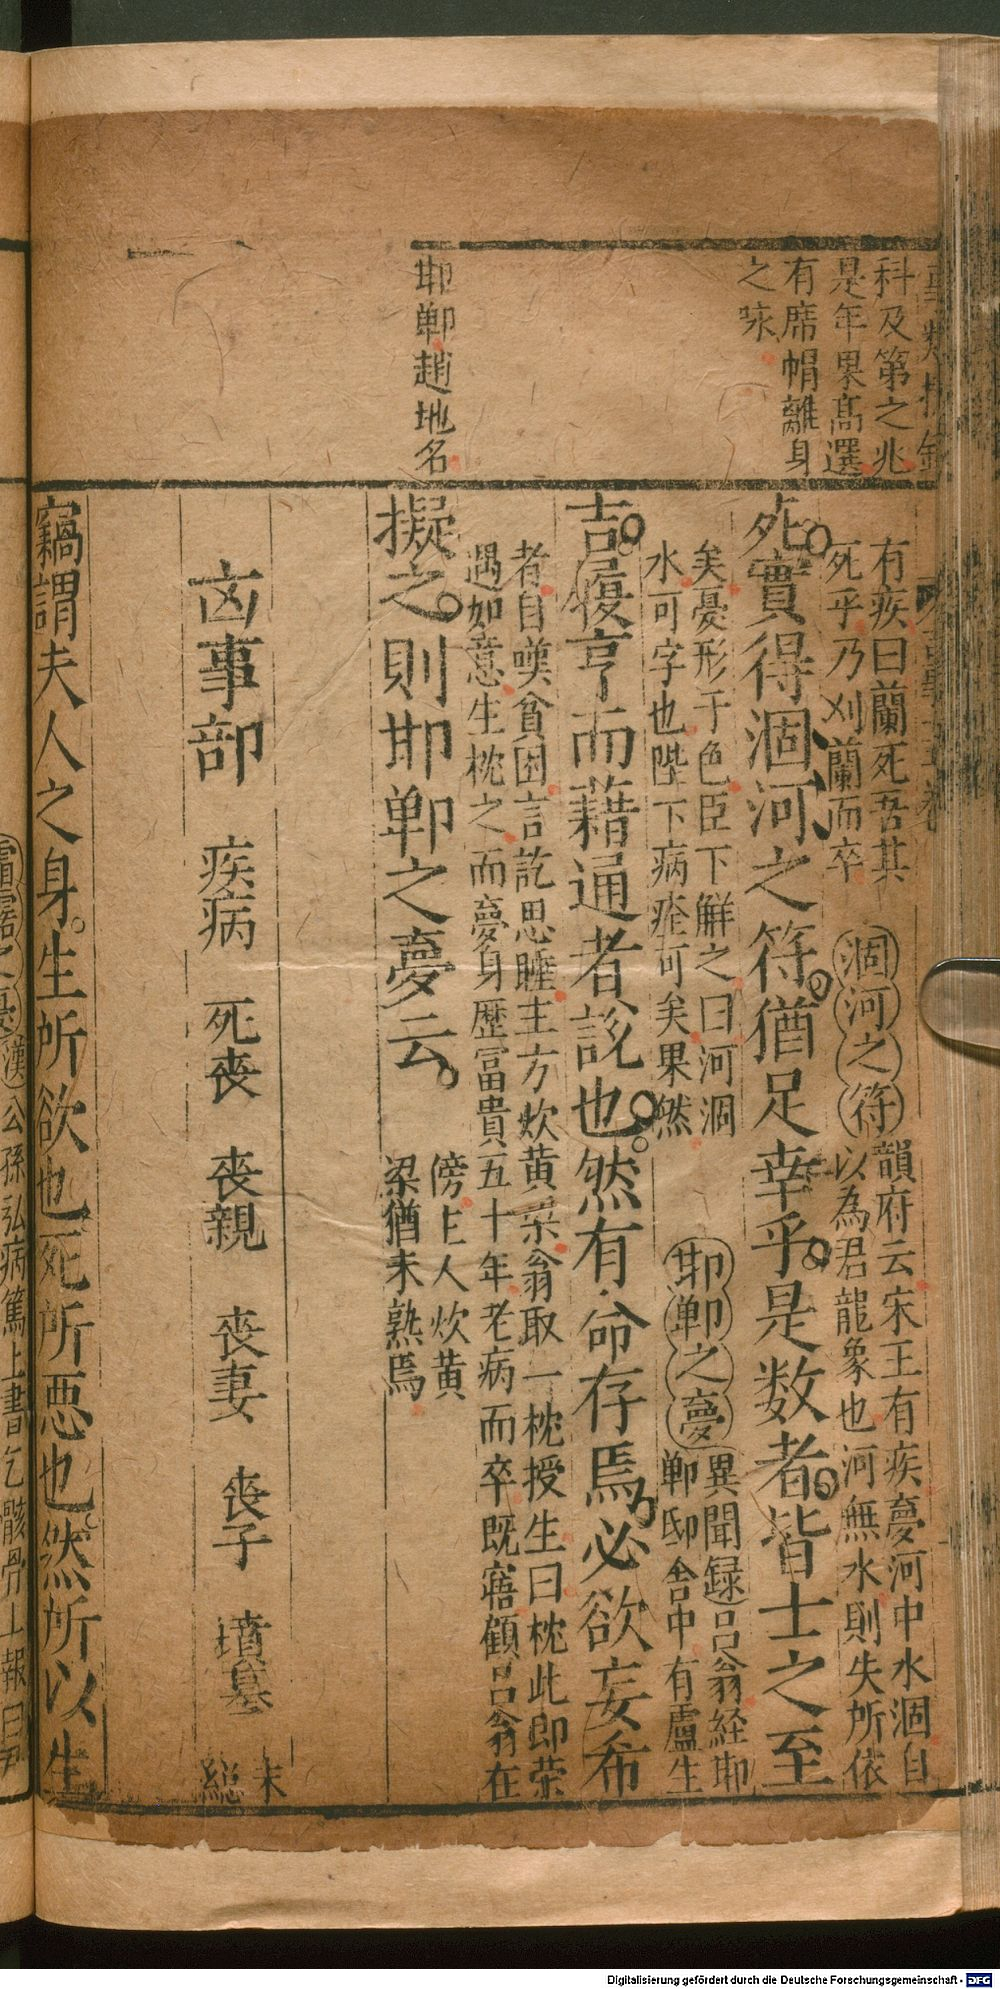 科及第之兆
是年果髙選
有席帽離身
之咏
耶鄲趙地名
有疾曰蘭死吾其
死乎乃刈蘭而卒
涸河之符
韻府云宋王有疾夢河中水涸自
以為君龍象也河無水則失所依
死實得涸河之符猶足幸乎是数者皆士之至
矣憂形于色臣下解之曰河涸
水可字也陛下病痊可矣果然
耶鄲之夢
異聞録吕翁経耶
鄲邸舎中有盧生
吉履亨而藉通者說也然有命存焉必欲妄希
者自嘆貧困言訖思睡主方炊黄粱翁取一枕授生曰枕此即荣
遇如意生枕之而夢身歷冨貴五十年老病而卒既寤顧吕翁在
傍主人炊黄
梁猶未熟焉
擬之則耶鄲之夢云
凶事部 疾病 死丧 丧親 丧妻 丧子 墳墓 末総
竊謂夫人之身生所欲也死所悪也然所以生
漢公孫弘病篤上書乞骸骨上報曰
Digitalisierung gefördert durch die Deutsche Forschungsgemeinschaft - DFG